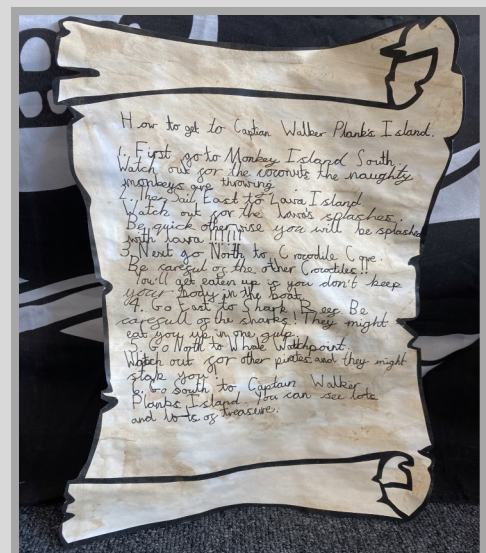 How to get to Captian Walker Plank's Island.
1. First go to Monkey Island South.
Watch out for the coconuts the naughty
monkeys are throwing
2. Then Sail East to Lava Island
Watch out for the lava's splashes.
Be quick otherwise you will be splashed
with lava !!!!!!
3. Next go North to Crocodile Cove.
Be careful of the other Crocodiles!!
You'll get eaten up if you don't keep
your body in the boat.
4. Go East to Shark Reef. Be
carefull of the sharks! They might
eat you up in one gulp.
5. Go North to Whale Watchpoint.
Watch out for other pirates and they might
you
6. Go South to Captain Walker
Planks Island. You can see lots
and lots of treasure.